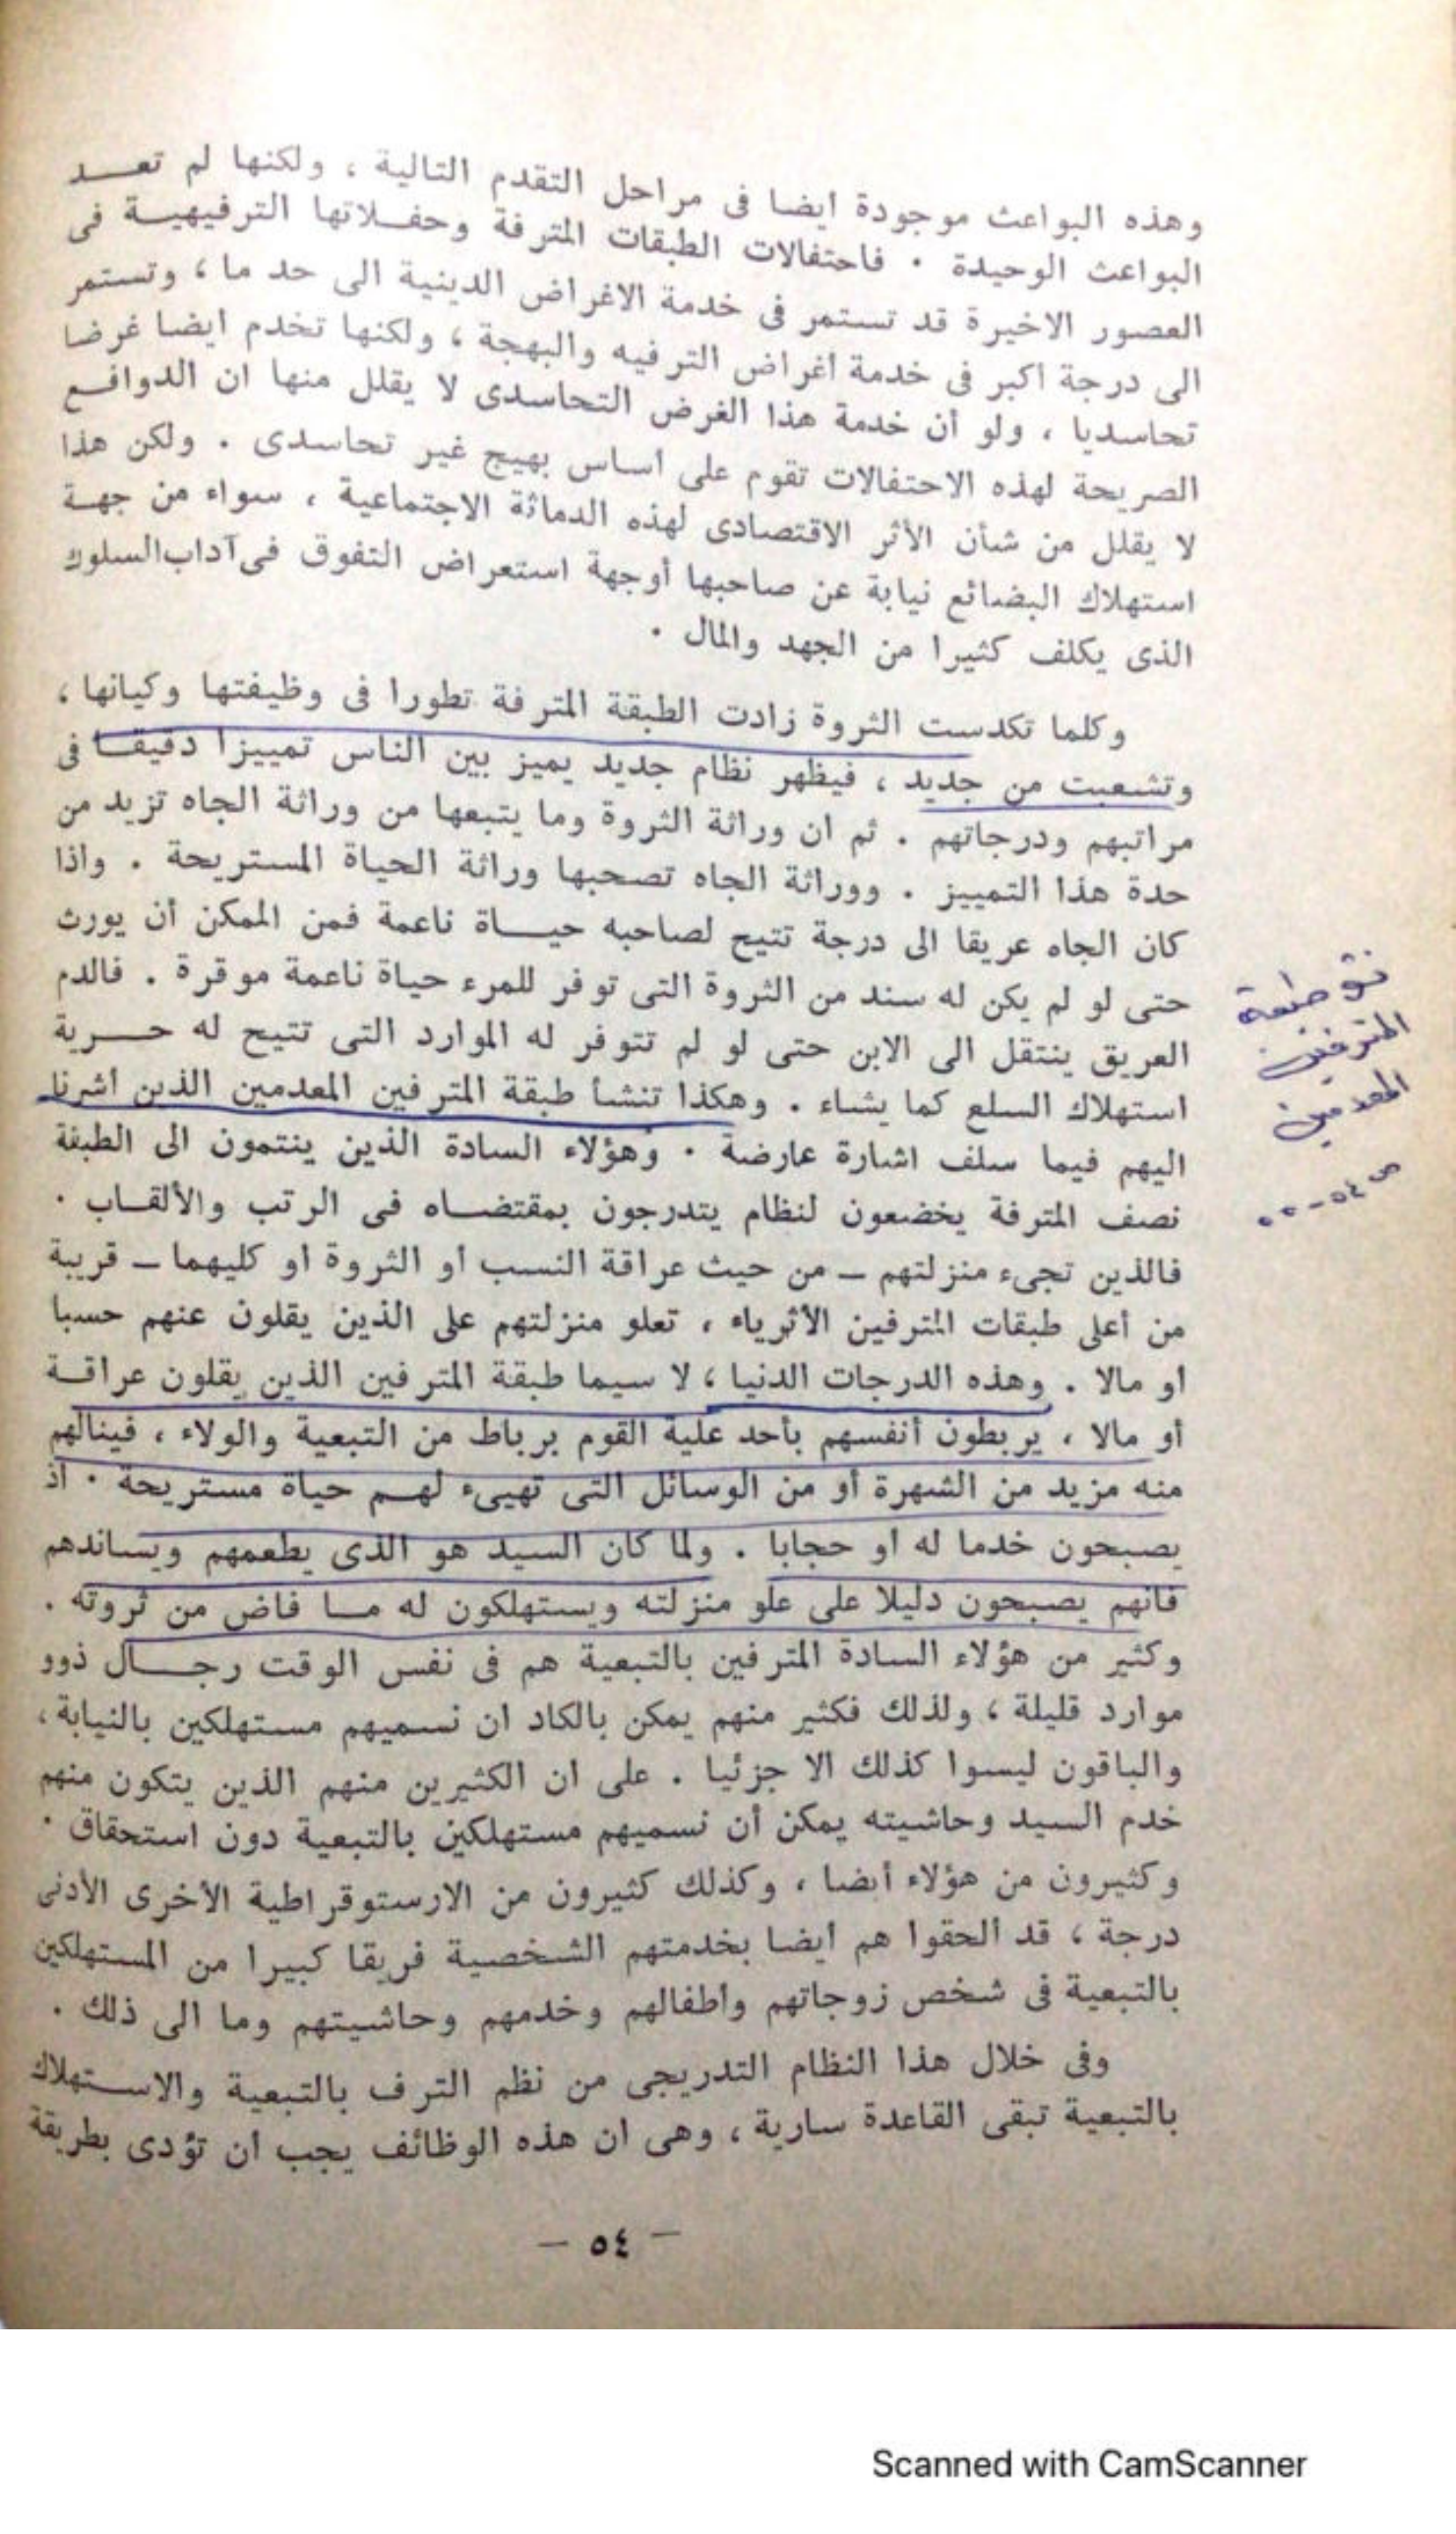 وهذه البواعث موجودة ايضا فى مراحل التقدم التالية ، ولكنها لم تعــد
البواعث الوحيدة . فاحتفالات الطبقات المترفة وحفــلاتها الترفيهيــة فى
العصور الاخيرة قد تستمر فى خدمة الاغراض الدينية الى حد ما ، وتستمر
الى درجة اكبر فى خدمة اغراض الترفيه والبهجة ، ولكنها تخدم ايضا غرضا
تحاسديا ، ولو أن خدمة هذا الغرض التحاسدى لا يقلل منها ان الدوافــع
الصريحة لهذه الاحتفالات تقوم على اساس بهيج غير تحاسدى . ولكن هذا
لا يقلل من شأن الأثر الاقتصادى لهذه الدماثة الاجتماعية ، سواء من جهــة
استهلاك البضائع نيابة عن صاحبها أوجهة استعراض التفوق فىآداب‌السلوك
الذى يكلف كثيرا من الجهد والمال .
وكلما تكدست الثروة زادت الطبقة المترفة تطورا فى وظيفتها وكيانها ،
وتشعبت من جديد ، فيظهر نظام جديد يميز بين الناس تمييزا دقيقــا فى
مراتبهم ودرجاتهم . ثم ان وراثة الثروة وما يتبعها من وراثة الجاه تزيد من
حدة هذا التمييز . ووراثة الجاه تصحبها وراثة الحياة المستريحة . واذا
كان الجاه عريقا الى درجة تتيح لصاحبه حيــاة ناعمة فمن الممكن أن يورث
حتى لو لم يكن له سند من الثروة التى توفر للمرء حياة ناعمة موقرة . فالدم
العريق ينتقل الى الابن حتى لو لم تتوفر له الموارد التى تتيح له حــرية
استهلاك السلع كما يشاء . وهكذا تنشأ طبقة المترفين المعدمين الذين أشرنا
اليهم فيما سلف اشارة عارضة . وهؤلاء السادة الذين ينتمون الى الطبقة
نصف المترفة يخضعون لنظام يتدرجون بمقتضــاه فى الرتب والألقــاب .
فالذين تجىء منزلتهم ــ من حيث عراقة النسب أو الثروة او كليهما ــ قريبة
من أعلى طبقات المترفين الأثرياء ، تعلو منزلتهم على الذين يقلون عنهم حسبا
او مالا . وهذه الدرجات الدنيا ، لا سيما طبقة المترفين الذين يقلون عراقــة
أو مالا ، يربطون أنفسهم بأحد علية القوم برباط من التبعية والولاء ، فينالهم
منه مزيد من الشهرة أو من الوسائل التى تهيىء لهــم حياة مستريحة . اذ
يصبحون خدما له او حجابا . ولما كان السيد هو الذى يطعمهم ويساندهم
فانهم يصبحون دليلا على علو منزلته ويستهلكون له مــا فاض من ثروته .
وكثير من هؤلاء السادة المترفين بالتبعية هم فى نفس الوقت رجــال ذوو
موارد قليلة ، ولذلك فكثير منهم يمكن بالكاد ان نسميهم مستهلكين بالنيابة ،
والباقون ليسوا كذلك الا جزئيا . على ان الكثيرين منهم الذين يتكون منهم
خدم السيد وحاشيته يمكن أن نسميهم مستهلكين بالتبعية دون استحقاق .
وكثيرون من هؤلاء أيضا ، وكذلك كثيرون من الارستوقراطية الأخرى الأدنى
درجة ، قد الحقوا هم ايضا بخدمتهم الشخصية فريقا كبيرا من المستهلكين
بالتبعية فى شخص زوجاتهم وأطفالهم وخدمهم وحاشيتهم وما الى ذلك .
وفى خلال هذا النظام التدريجى من نظم الترف بالتبعية والاســتهلاك
بالتبعية تبقى القاعدة سارية ، وهى ان هذه الوظائف يجب ان تؤدى بطريقة
ــ ٥٤ ــ
طبقة
المترفين
المعدمين
ص ٥٤ - ٥٥
Scanned with CamScanner